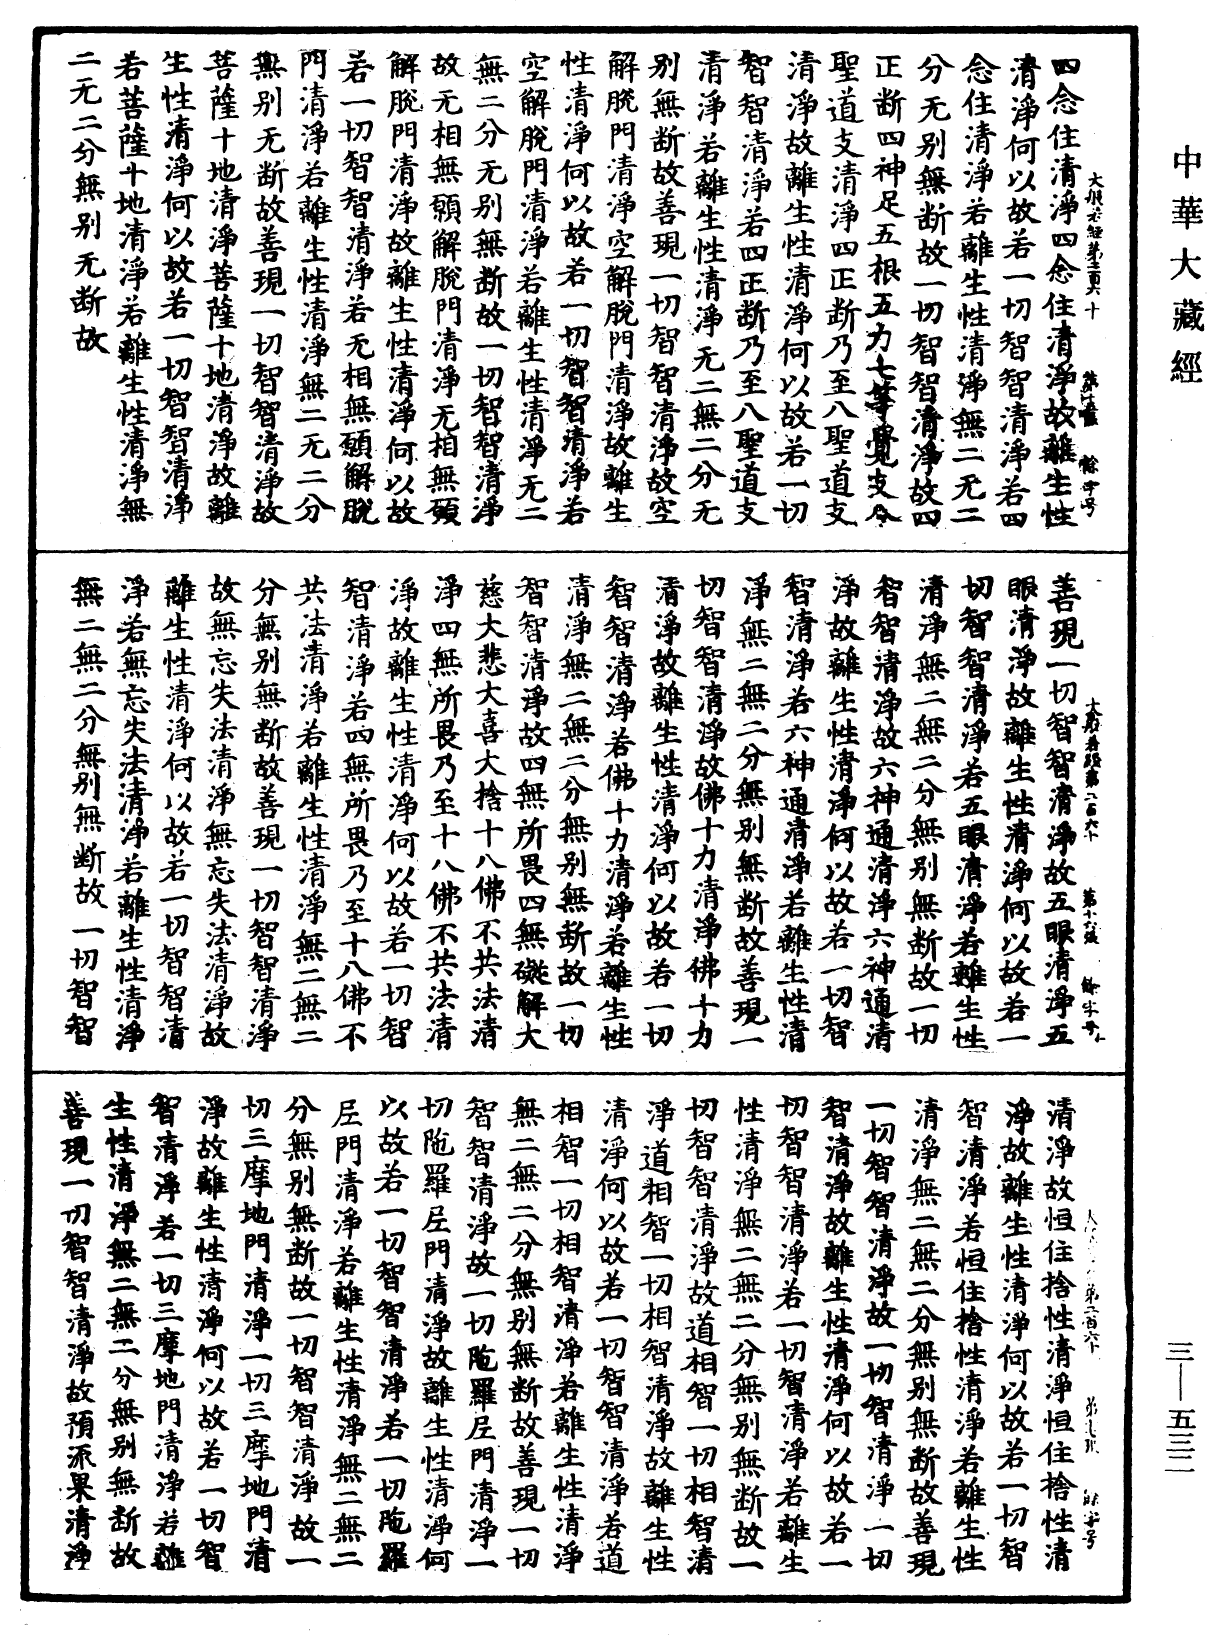 中華大藏經
四念住清淨四念住清淨故離生性
清淨何以故若一切智智清淨若四
念住清淨若離生性清淨無二无二
分无别無断故一切智智清淨故四
正断四神足五根五力七等覺支八
聖道支清淨四正断乃至八聖道支
清淨故離生性清淨何以故若一切
智智清淨若四正断乃至八聖道支
清淨若離生性清淨无二無二分无
别無断故善現一切智智清淨故空
解脫門清淨空解脫門清淨故離生
性清淨何以故若一切智智清淨若
空解脫門清淨若離生性清淨无二
無二分无别無断故一切智智清淨
故无相無願解脫門清淨无相無願
解脫門清淨故離生性清淨何以故
若一切智智清淨若无相無願解脫
門清淨若離生性清淨無二无二分
無别无断故善現一切智智清淨故
菩薩十地清淨菩薩十地清淨故離
生性清淨何以故若一切智智清淨
若菩薩十地清淨若離生性清淨無
二无二分無别无断故
大般若經第二百六十
善現一切智智清淨故五眼清淨五
眼清淨故離生性清淨何以故若一
切智智清淨若五眼清淨若離生性
清淨無二無二分無别無断故一切
智智清淨故六神通清淨六神通清
淨故離生性清淨何以故若一切智
智清淨若六神通清淨若離生性清
淨無二無二分無别無断故善現一
切智智清淨故佛十力清淨佛十力
清淨故離生性清淨何以故若一切
智智清淨若佛十力清淨若離生性
清淨無二無二分無别無断故一切
智智清淨故四無所畏四無礙解大
慈大悲大喜大捨十八佛不共法清
淨四無所畏乃至十八佛不共法清
淨故離生性清淨何以故若一切智
智清淨若四無所畏乃至十八佛不
共法清淨若離生性清淨無二無二
分無别無断故善現一切智智清淨
故無忘失法清淨無忘失法清淨故
離生性清淨何以故若一切智智清
淨若無忘失法清淨若離生性清淨
無二無二分無别無断故一切智智
大般若經第二百六十
清淨故恒住捨性清淨恒住捨性清
淨故離生性清淨何以故若一切智
智清淨若恒住捨性清淨若離生性
清淨無二無二分無别無断故善現
一切智智清淨故一切智清淨一切
智清淨故離生性清淨何以故若一
切智智清淨若一切智清淨若離生
性清淨無二無二分無别無断故一
切智智清淨故道相智一切相智清
淨道相智一切相智清淨故離生性
清淨何以故若一切智智清淨若道
相智一切相智清淨若離生性清淨
無二無二分無别無断故善現一切
智智清淨故一切陁羅尼門清淨一
切陁羅尼門清淨故離生性清淨何
以故若一切智智清淨若一切陁羅
尼門清淨若離生性清淨無二無二
分無别無断故一切智智清淨故一
切三摩地門清淨一切三摩地門清
淨故離生性清淨何以故若一切智
智清淨若一切三摩地門清淨若離
生性清淨無二無二分無别無断故
善現一切智智清淨故預流果清淨
三—五三二